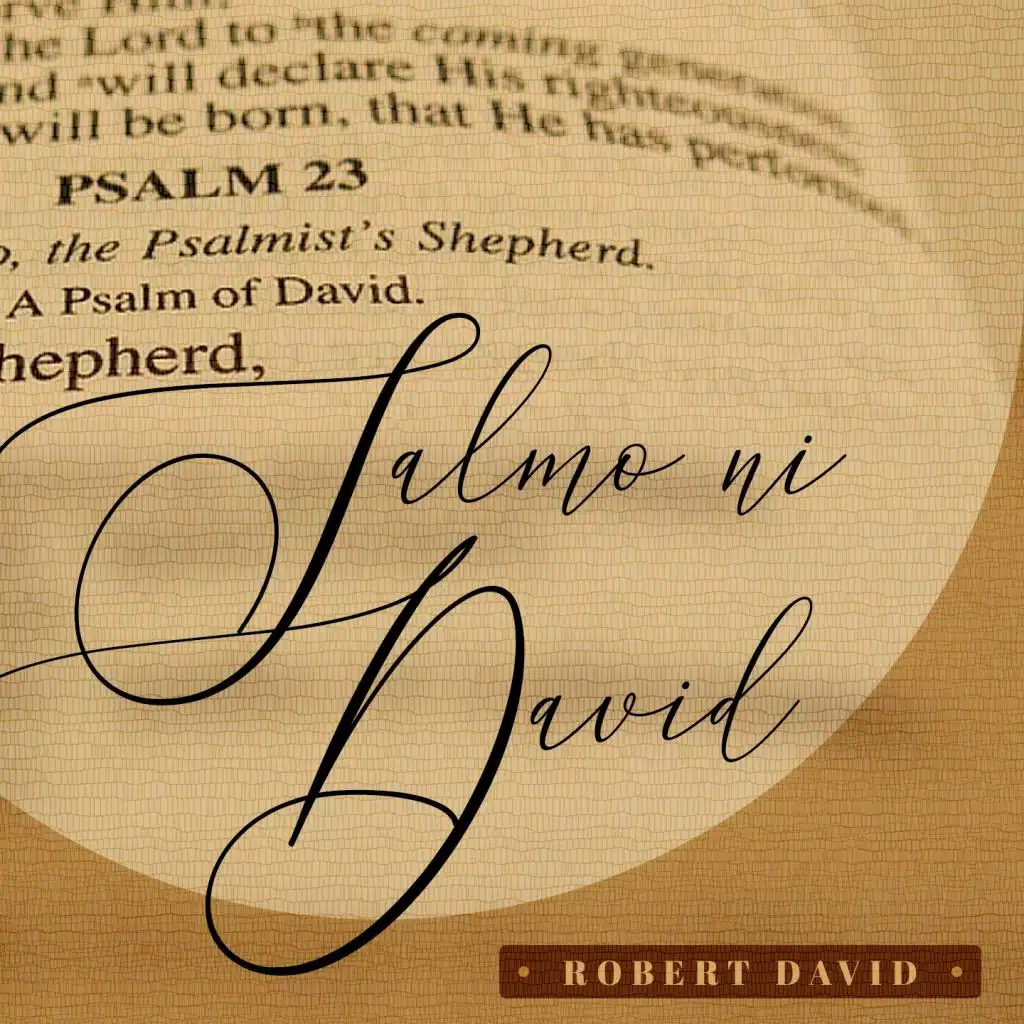 he Lord to the coming
nd will declare His righteousness
will be born, that He has
PSALM 23
, the Psalmist's Shepherd.
A Psalm of David.
hepherd,
Salmo ni
David
• ROBERT DAVID •